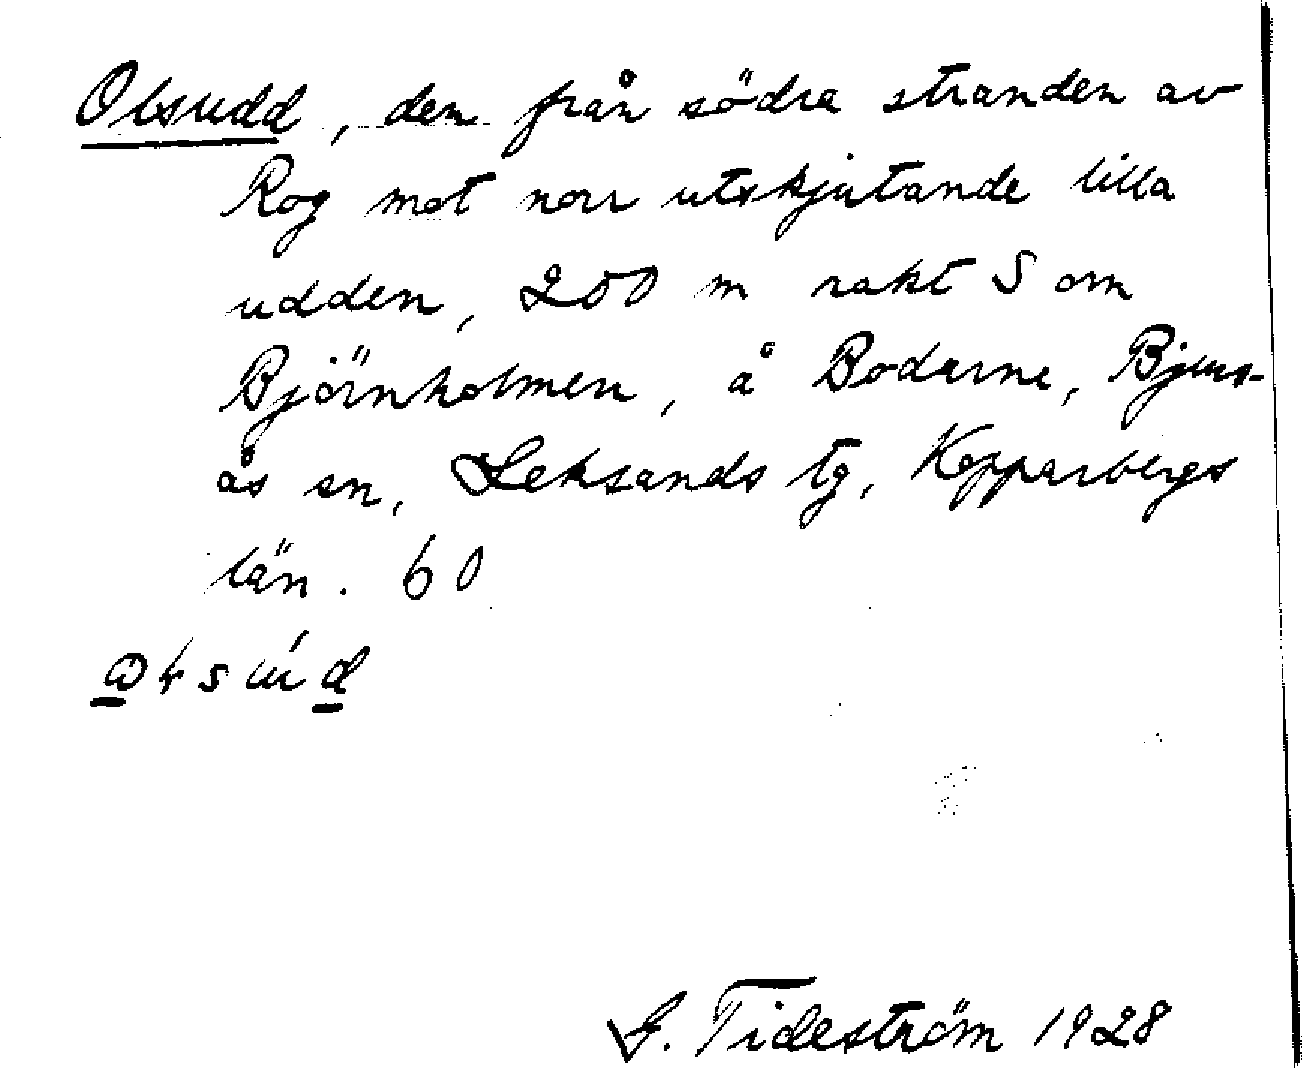 Olsudd, den från södra stranden av
Rog mot norr utskjutande lilla
udden, 200 m rakt S om
Björnholmen, å Bodarne, Bjurs-
ås sn, Leksands tg, Kopparbergs
län. 60
G. Tideström 1928